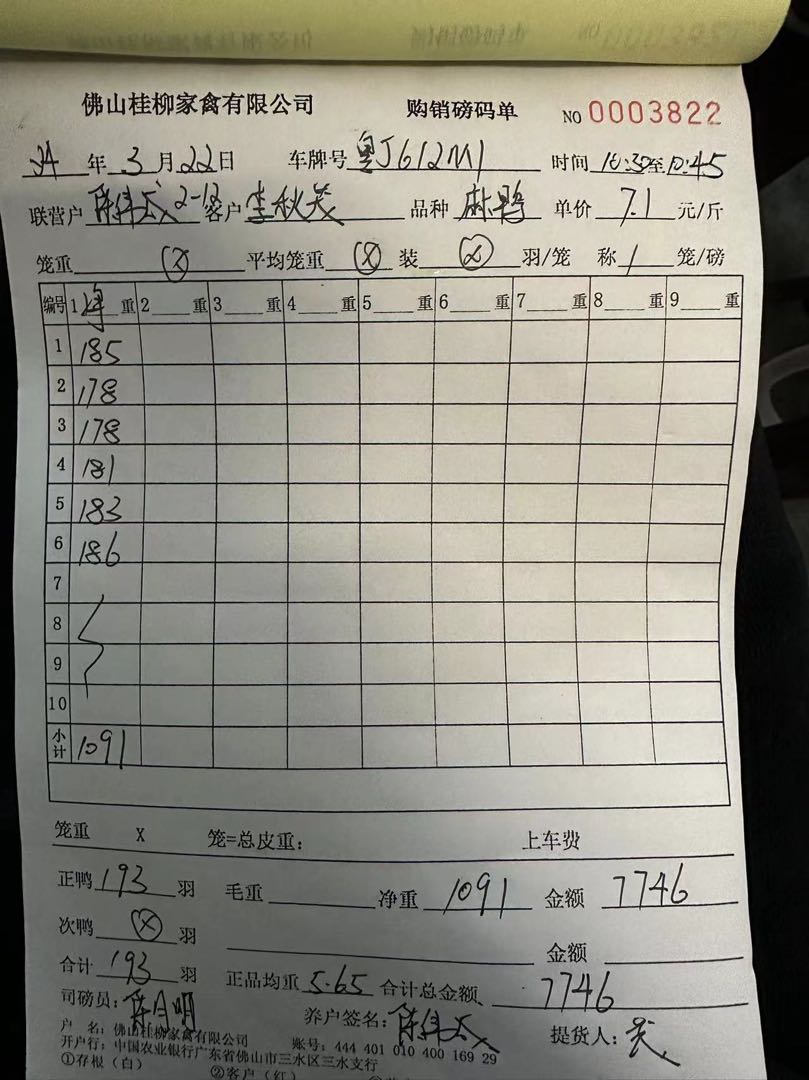 佛山桂柳家禽有限公司 购销磅码单 NO 0003822
24 年 3 月 22 日 车牌号 粤J612M1 时间 10:30至12:45
联营户 2-12 客户 李秋 品种 麻鸭 单价 7.1 元/斤
笼重 (X) 平均笼重 (X) 装 (X) 羽/笼 称 1 笼/磅
编号 1 净 重 2 重 3 重 4 重 5 重 6 重 7 重 8 重 9 重
1 185
2 178
3 178
4 181
5 183
6 186
7
8
9
10
小计 1091
笼重 X 笼=总皮重: 上车费
正鸭 193 羽 毛重 净重 1091 金额 7746
次鸭 (X) 羽 金额
合计 193 羽 正品均重 5.65 合计总金额 7746
司磅员: 养户签名: 提货人:
户 名: 佛山桂柳家禽有限公司 账号: 444 401 010 400 169 29
开户行: 中国农业银行广东省佛山市三水区三水支行
①存根(白) ②客户(红)